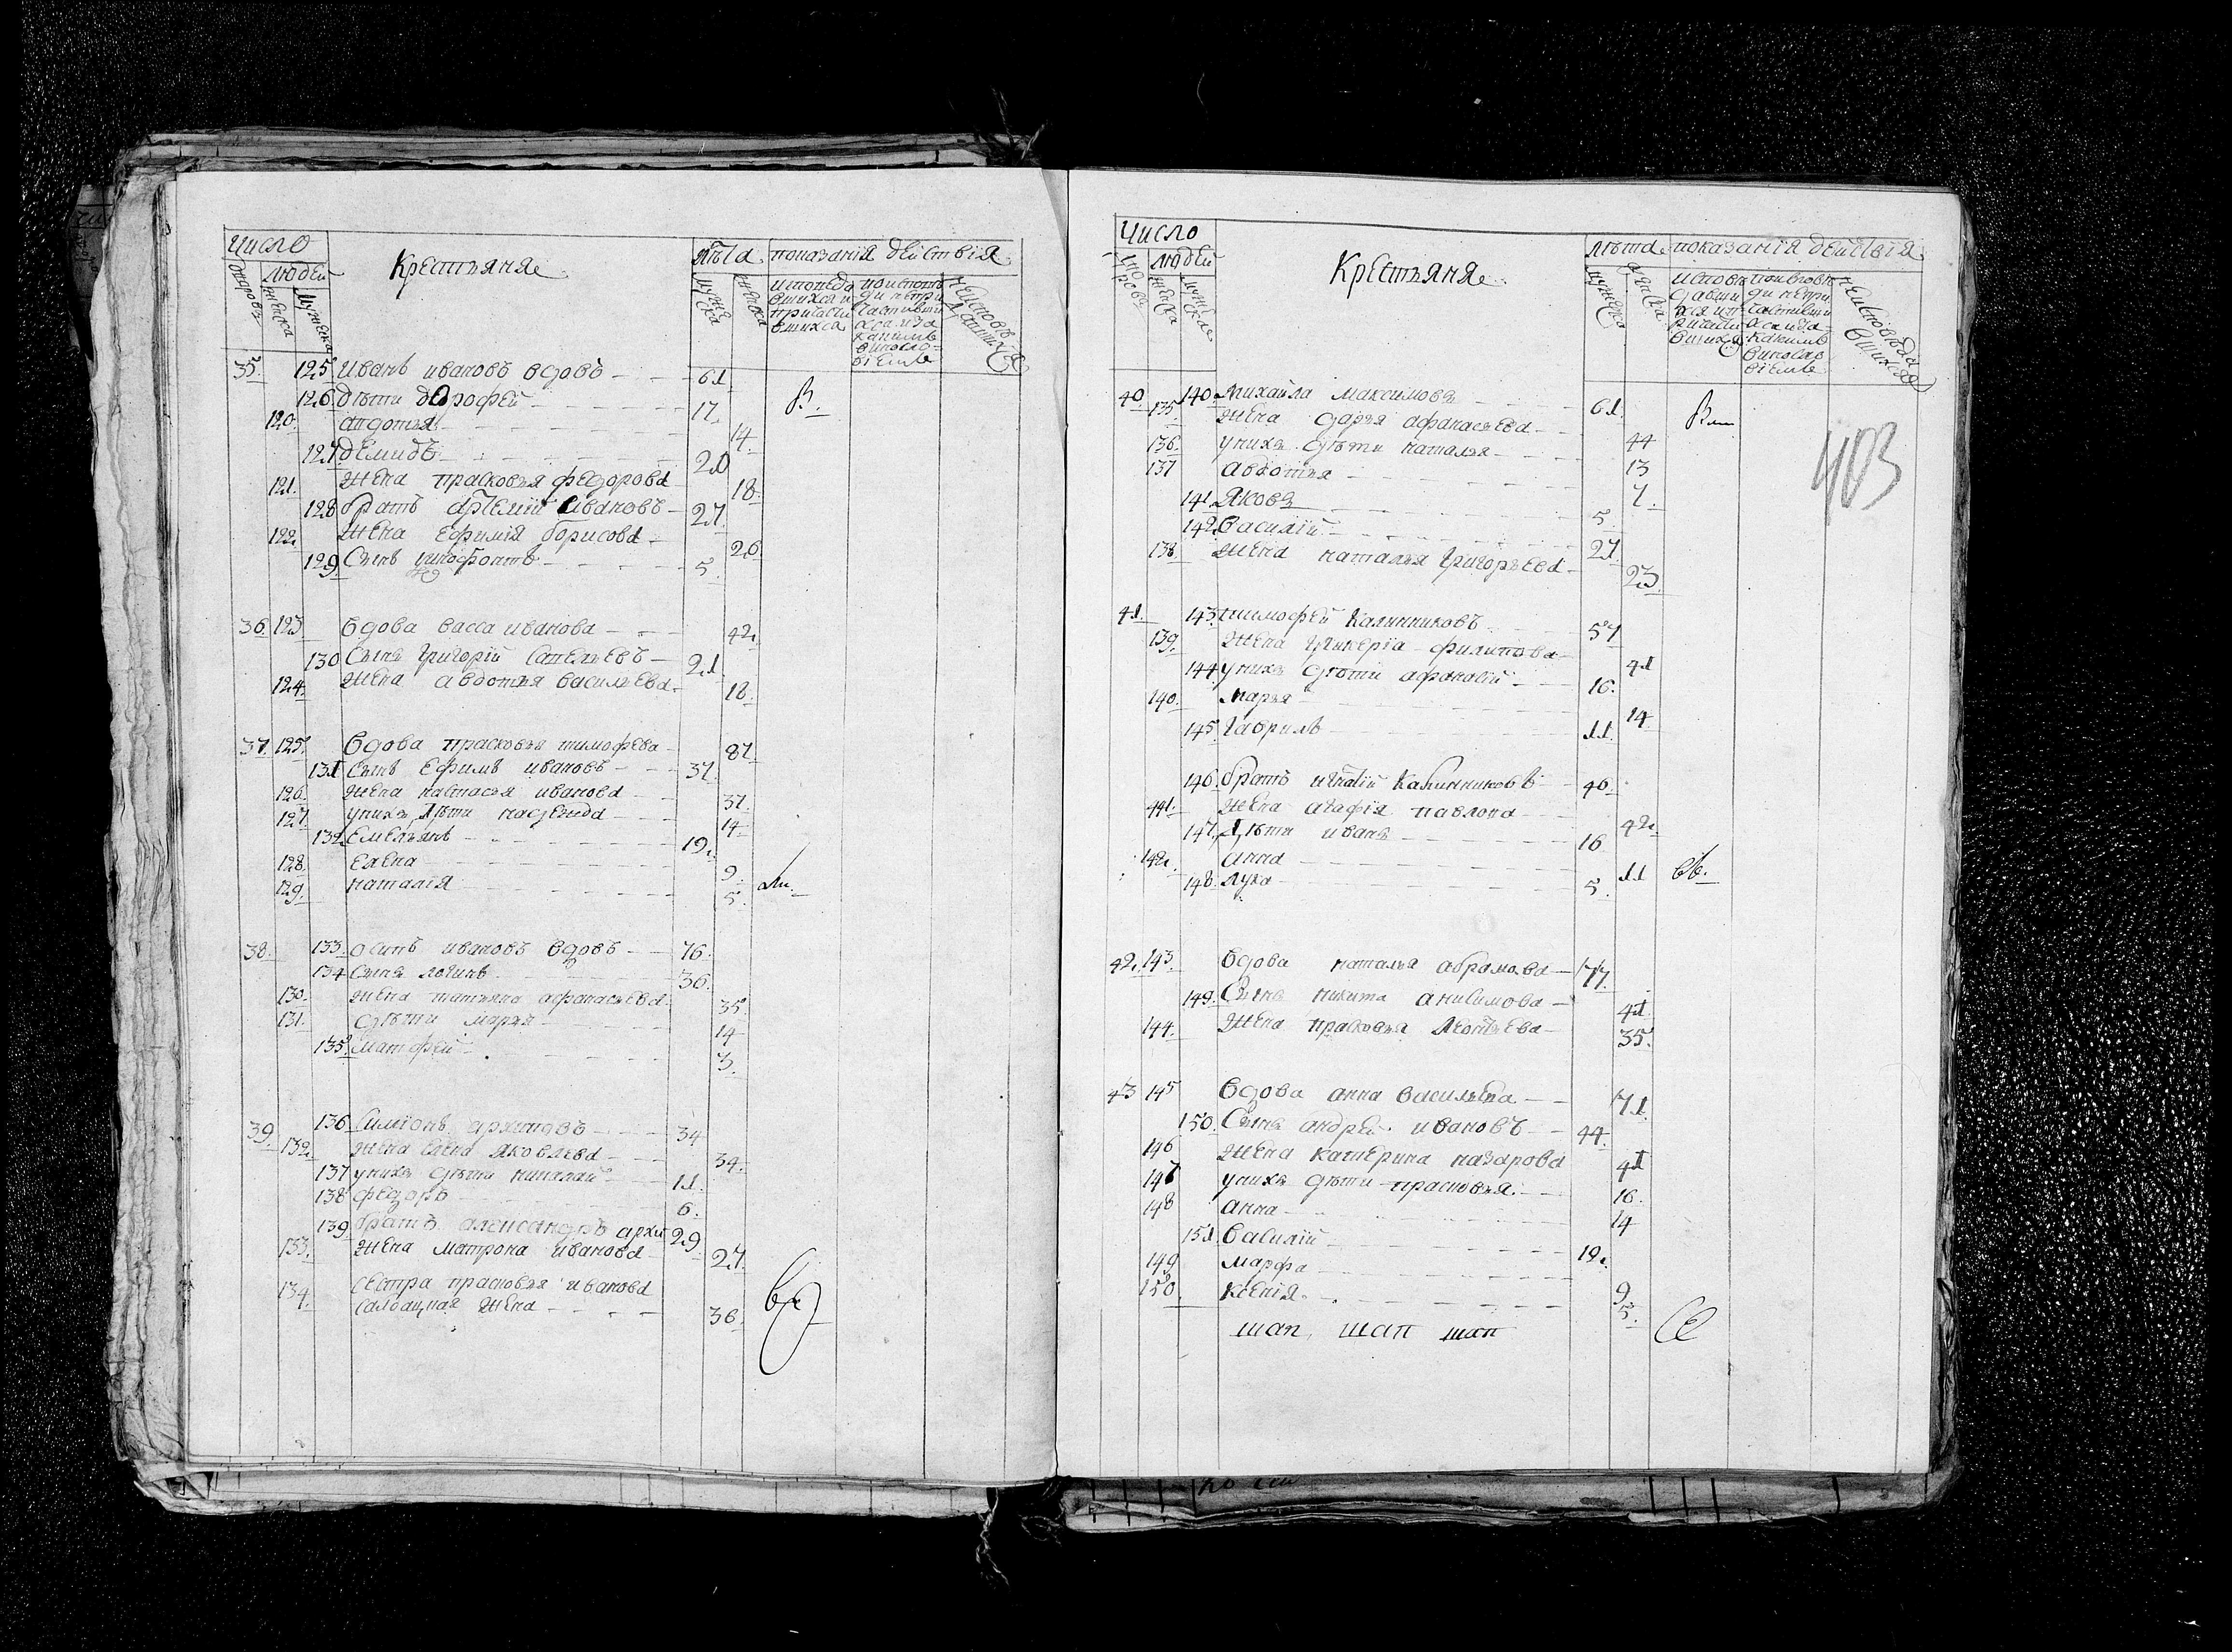 Число
Крестьяня
лѣта показанiя действiя
дваровъ людей
женска мужеска
35. 125 Иванъ ивановъ вдовъ 61
126 дѣти дорофей 17
120. андотья 14
127 демидъ 20
121. жена прасковья федорова 18
128 братъ артемiй ивановъ 27
122. жена ефимiя борисова 26
129 Сынъ 5
36. 123 вдова васса иванова 42
130 Сынъ григорiй савельевъ 21
124. жена авдотья васильева 18
37. 125. вдова прасковья тимофева 87
131 Сынъ ефимъ ивановъ 37
126. жена настасья иванова 37
127. унихъ дѣти надежда 14
132 Емельянъ 12
128. елена 9
129. наталiя 5
38. 133. осипъ ивановъ вдовъ 76
134 Сынъ логинъ 36
130. жена татьяна афанасьева 35
131. дѣти марья 14
135. Матфей 3
39. 136 Симiонъ архиповъ 34
132. жена елена яковлева 34
137 унихъ дѣти николай 11
138 федоръ 6
139 братъ александръ архи 29
133. жена матрона иванова 27
134. сестра прасковья иванова
салдацкая жена 36
Число
Крестьяня
лѣта показанiя действiя
людей
403
40. 140. михайла максимовъ 61
135. жена дарья афанасьева 44
136. унихъ дѣти наталья 13
137 авдотья 7
141. яковъ 5
142. василiй 27
138. жена наталья григорьева 23
41. 143. тимофей Калинниковъ 57
139. жена гликерiа филипова 41
144 унихъ дѣти афанасiй 16
140. марья 14
145. гаврилъ 11
146. братъ Калинниковъ 46
141. жена агафiя павлова 42
147. дѣти иванъ 16
142. анна 11
148. лука 5
42. 143. вдова наталья абрамова 77
149. Сынъ никита анисимова 41
144. жена прасковья леонтьева 35
43 145 вдова анна васильева 71
150. Сынъ андрей ивановъ 44
146 жена катерина назарова 41
147 унихъ дѣти прасковья 16
148 анна 14
151 василiй 12
149 марфа 9
150 ксенiя 5